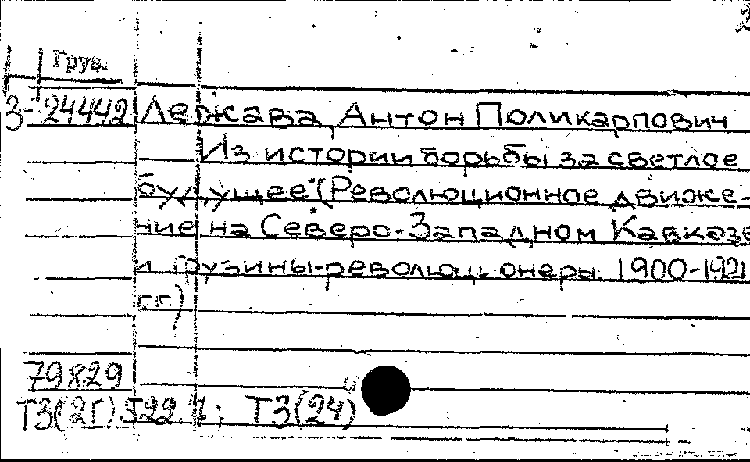 Груз.
3-24442 Державa, Антон Поликарпович
Из истории борьбы за светлое
будущее (Революционное движе-
ние на Северо-Западном Кавказе
и грузины-революционеры. 1900-1921
гг)
79829
Т3(2Г)522.1; Т3(24)